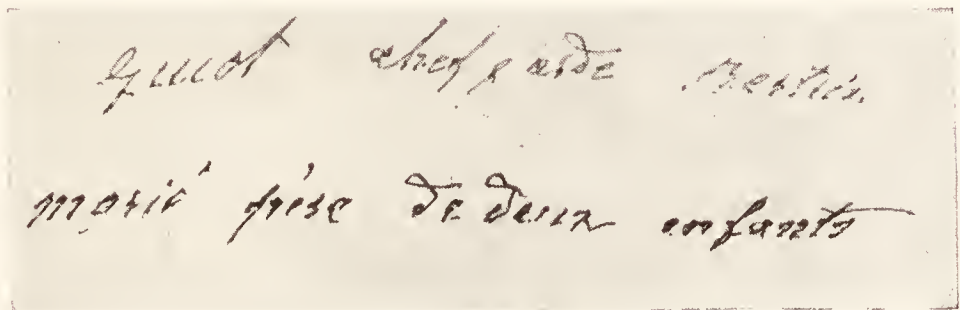 guiot chef garde Mestier
marié père de deux enfants